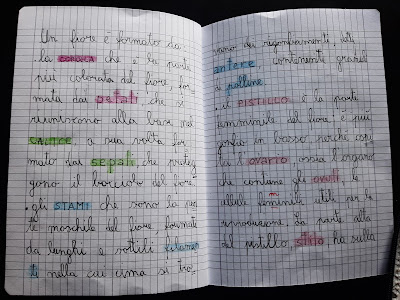 Un fiore è formato da:
la COROLLA che è la parte
più colorata del fiore, for
mata dai petali, che si
riuniscono alla base nel
CALICE, a sua volta for
mato dai sepali, che proteg
gono il bocciolo del fiore.
gli STAMI che sono la par
te maschile del fiore, formati
da lunghi e sottili filamen
ti nella cui cima si tro
vano dei rigonfiamenti,
antere contenenti granelli
di polline.
il PISTILLO è la parte
femminile del fiore, è più
gonfio in basso, perché
l'ovario, ossia l'organo
che contiene gli ovuli, le
cellule femminili utili per la
riproduzione. La parte alta
del pistillo, stilo, ha sulla